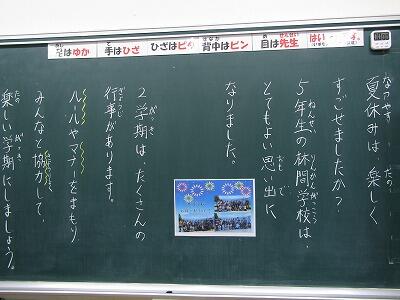 手はひざ
背中はピン
目は先生
夏休みは楽しく
すごせましたか?
5年生の林間学校は、
とてもよい思い出に
なりました。
2学期は、たくさんの
行事があります。
ルールやマナーをまもり
みんなと協力して、
楽しい学期にしましょう。